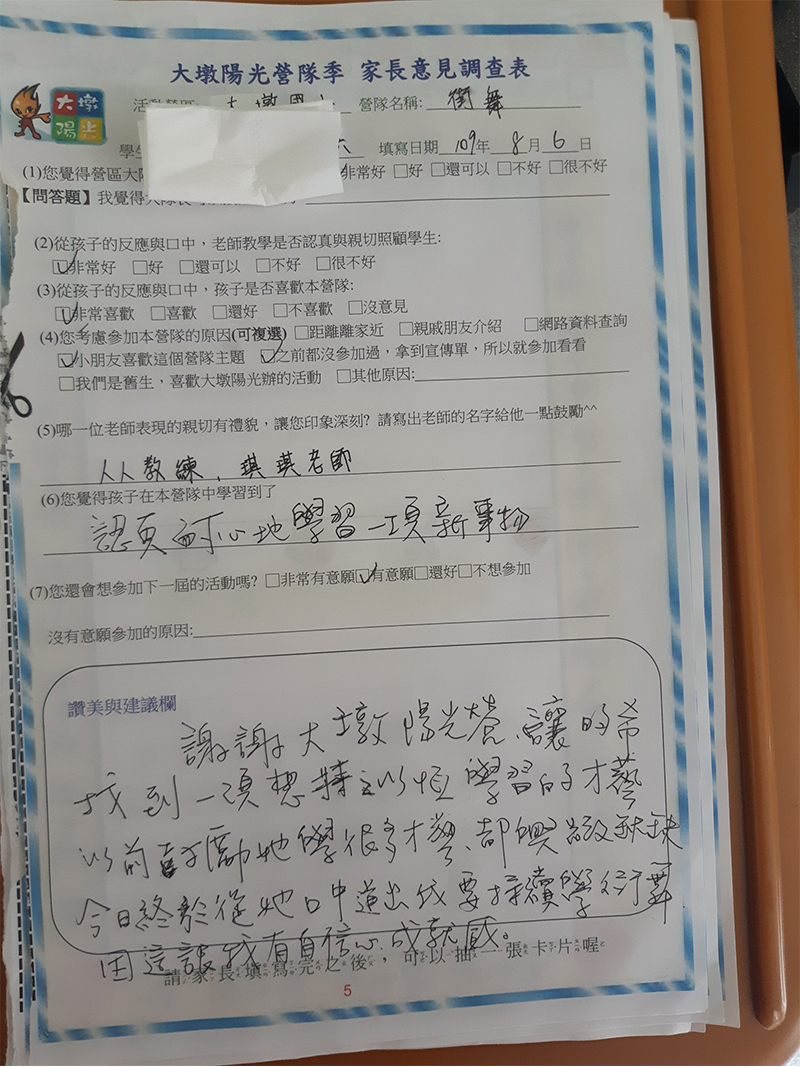 大墩陽光營隊季 家長意見調查表
大墩
陽光
大墩國小 營隊名稱: 街舞
學 六 填寫日期 109年 8月 6日
(1)您覺得營區大隊 非常好 □好 □還可以 □不好 □很不好
【問答題】我覺得大隊長
(2)從孩子的反應與口中，老師教學是否認真與親切照顧學生:
☑非常好 □好 □還可以 □不好 □很不好
(3)從孩子的反應與口中，孩子是否喜歡本營隊:
☑非常喜歡 □喜歡 □還好 □不喜歡 □沒意見
(4)您考慮參加本營隊的原因(可複選) □距離離家近 □親戚朋友介紹 □網路資料查詢
☑小朋友喜歡這個營隊主題 ☑之前都沒參加過，拿到宣傳單，所以就參加看看
□我們是舊生，喜歡大墩陽光辦的活動 □其他原因:
(5)哪一位老師表現的親切有禮貌，讓您印象深刻? 請寫出老師的名字給他一點鼓勵^^
人人教練、琪琪老師
(6)您覺得孩子在本營隊中學習到了
認真耐心地學習一項新事物
(7)您還會想參加下一屆的活動嗎? □非常有意願 ☑有意願 □還好 □不想參加
沒有意願參加的原因:
讚美與建議欄
謝謝大墩陽光營、讓 希
找到一項想持之以恆學習的才藝
以前鼓勵她學很多才藝、都興致缺缺
今日終於從她口中道出我要持續學街舞
因這讓我有自信心、成就感。
請家長填寫完之後，可以抽一張卡片喔
5